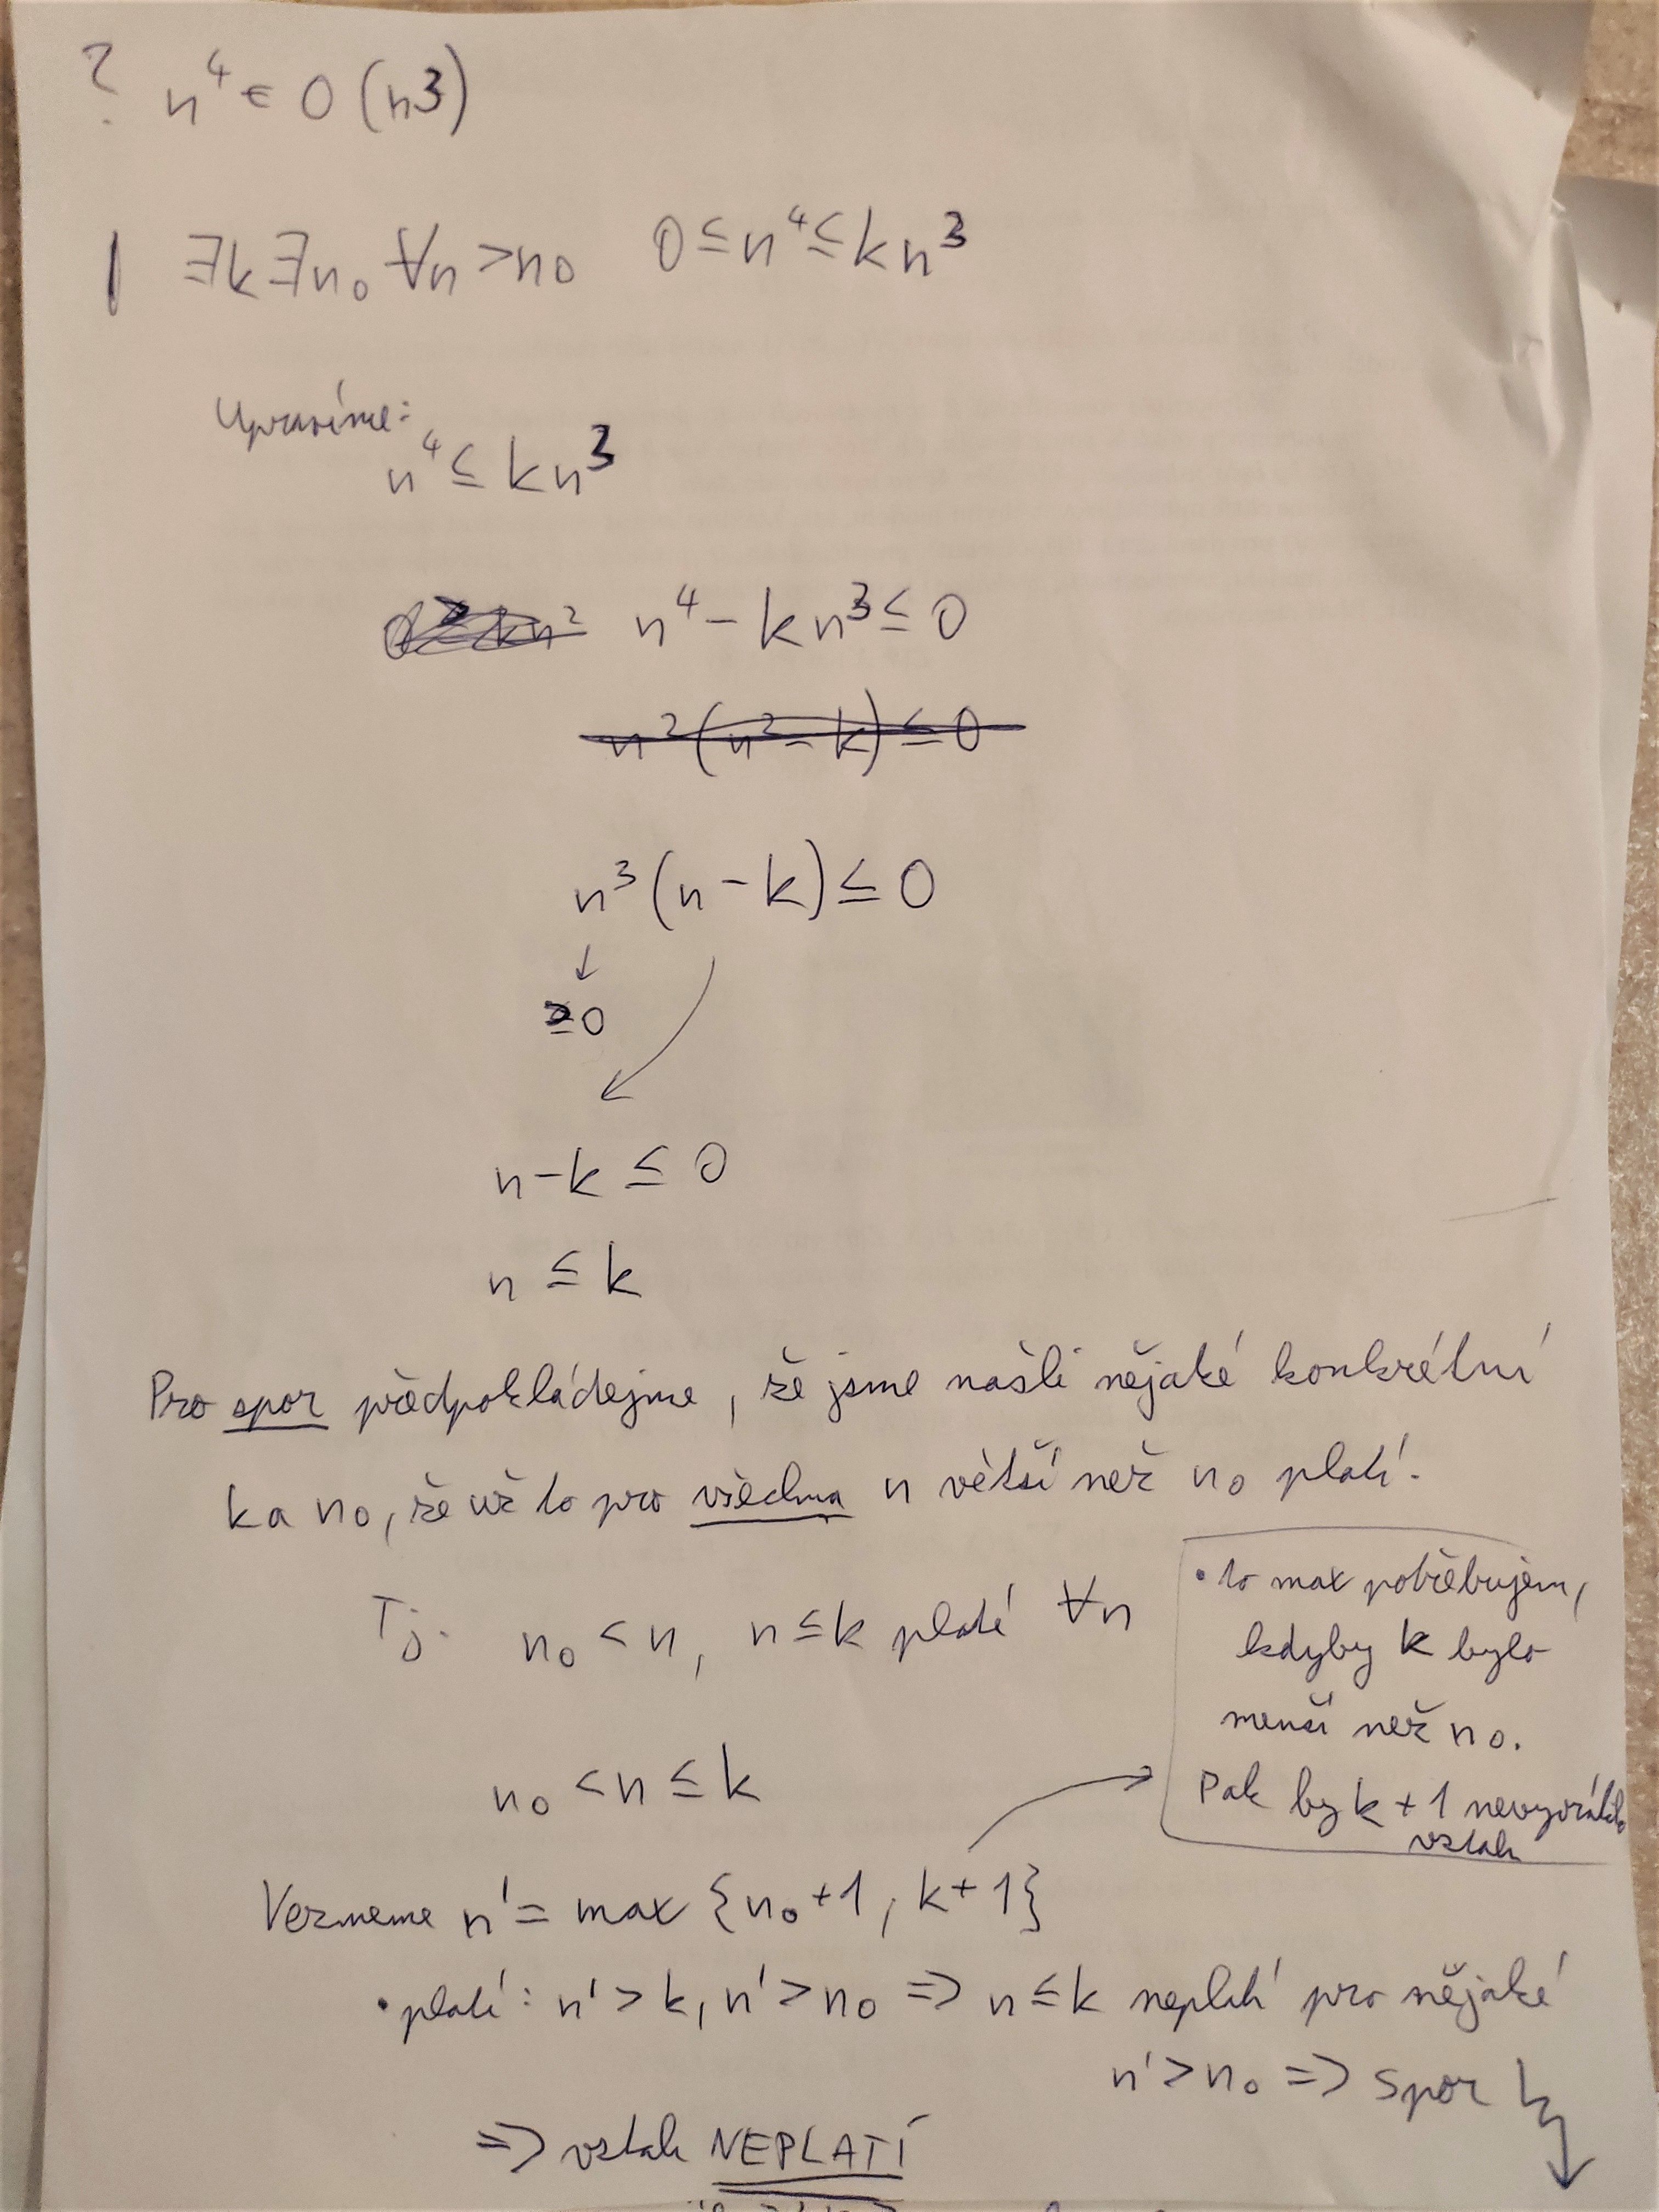 ? n⁴ ∈ O (n³)
| ∃k ∃n₀ ∀n > n₀ 0 ≤ n⁴ ≤ kn³
Upravíme:
n⁴ ≤ kn³
n⁴ - kn³ ≤ 0
n²(n² - k) ≤ 0
n³(n - k) ≤ 0
↓
≥0
n - k ≤ 0
n ≤ k
Pro spor předpokládejme, že jsme našli nějaké konkrétní
k a n₀, že už to pro všechna n větší než n₀ platí.
Tj. n₀ < n, n ≤ k platí ∀n
n₀ < n ≤ k
• to max potřebujem,
kdyby k bylo
menší než n₀.
Pak by k + 1 nevyvrátilo
vztah
Vezmeme n' = max {n₀ + 1, k + 1}
• platí: n' > k, n' > n₀ => n ≤ k neplatí pro nějaké
n' > n₀ => spor
=> vztah NEPLATÍ